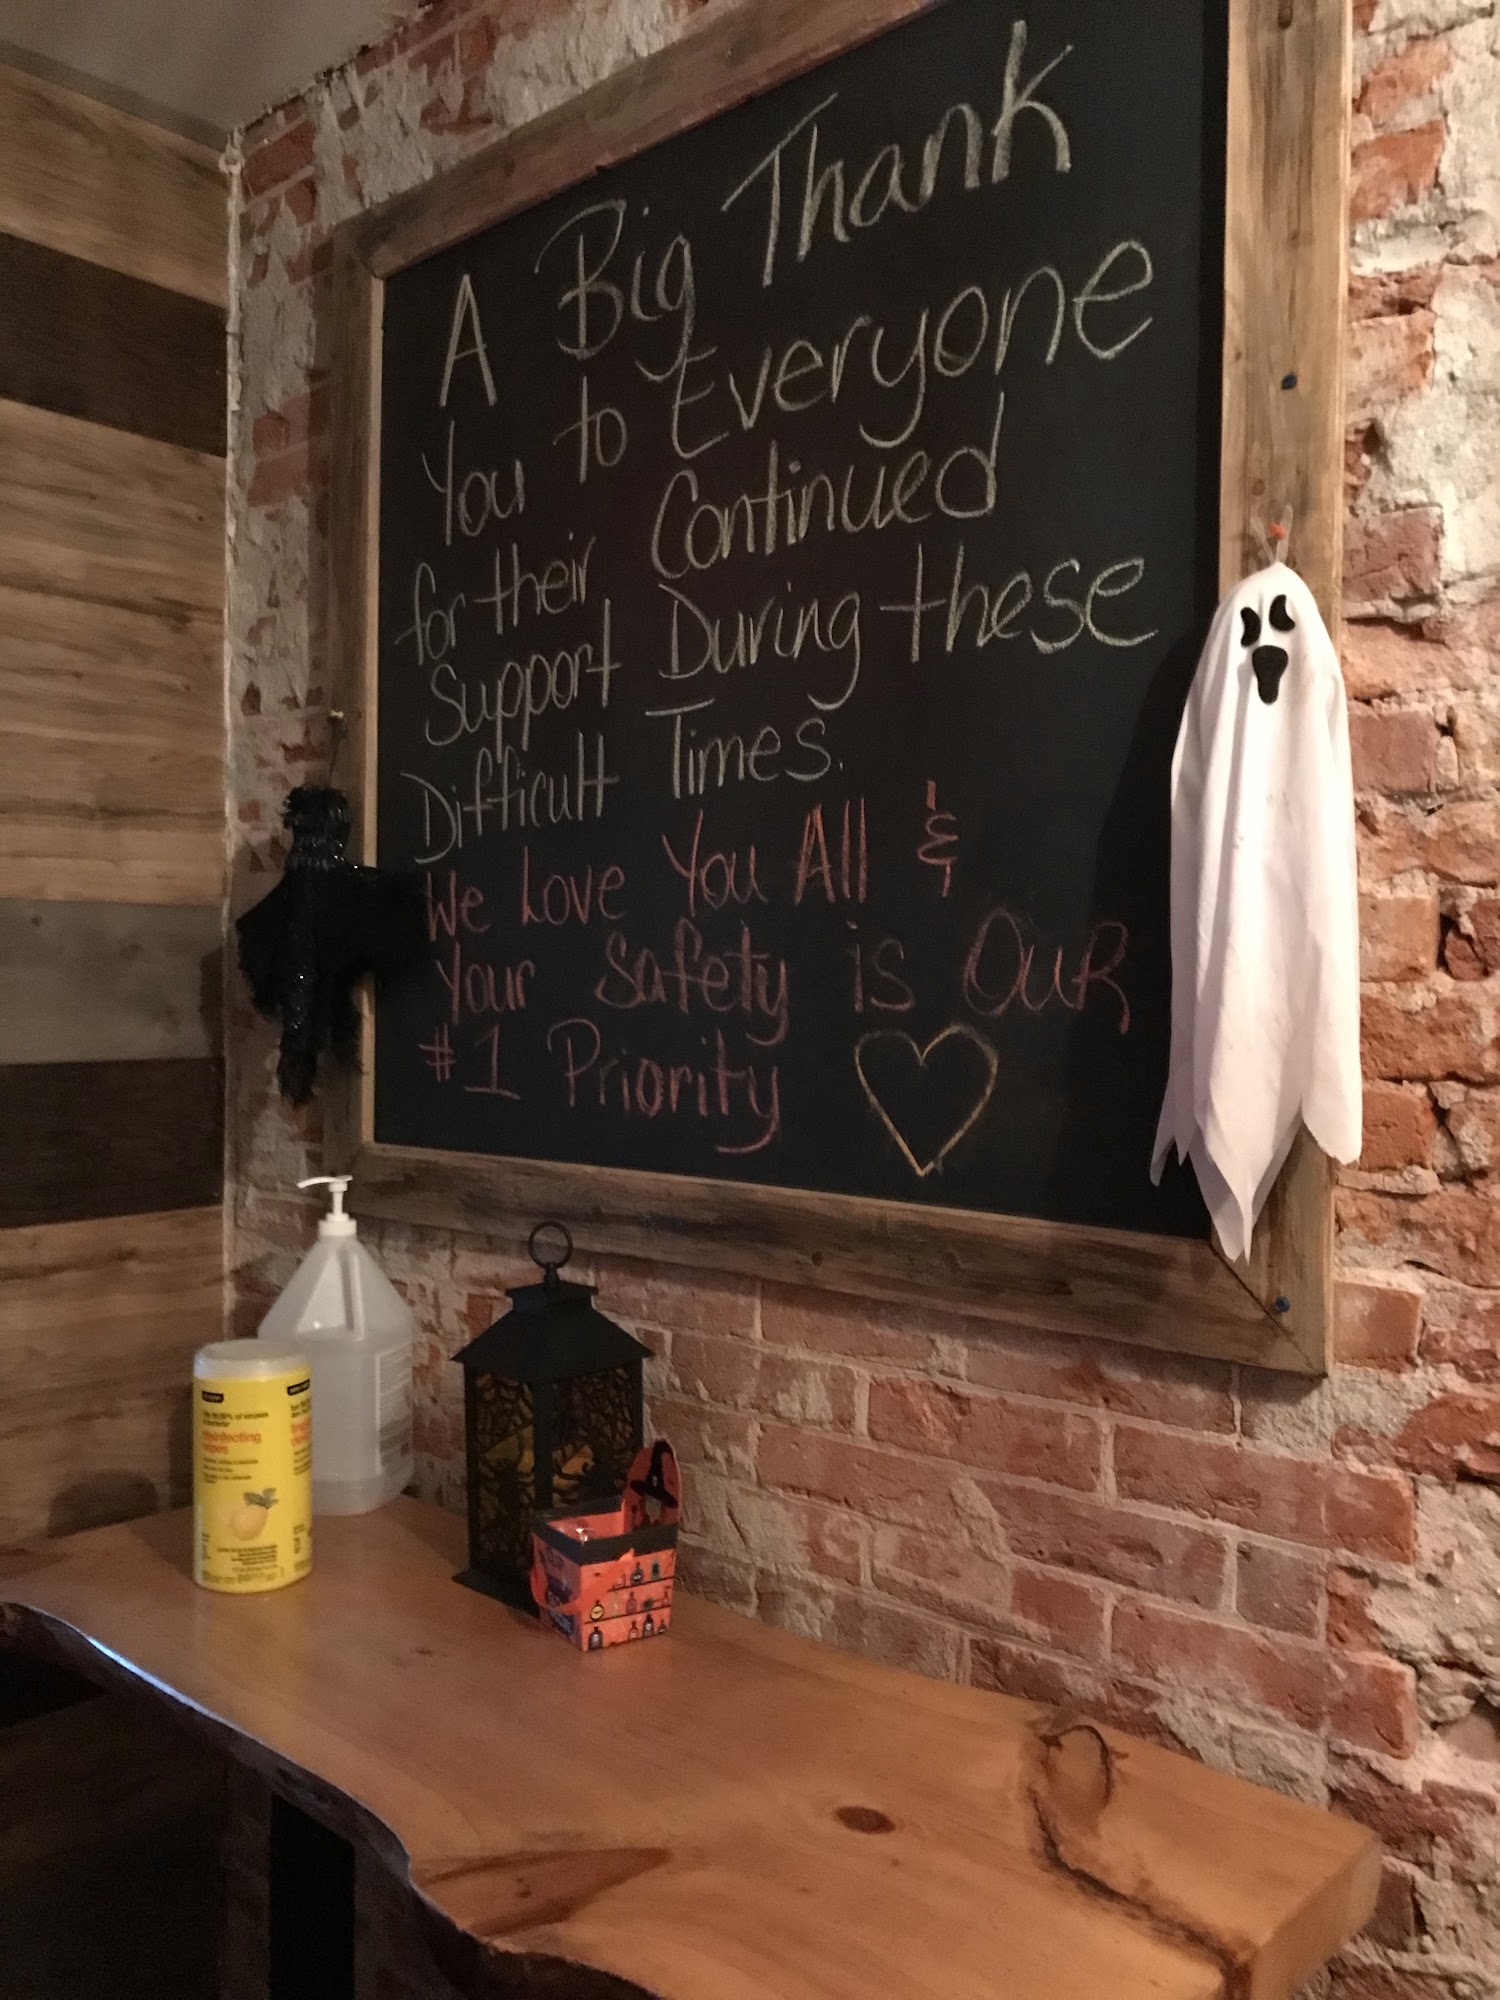 A Big Thank
You to Everyone
for their Continued
Support During these
Difficult Times.
We Love You All &
Your Safety is Our
#1 Priority
disinfecting
wipes